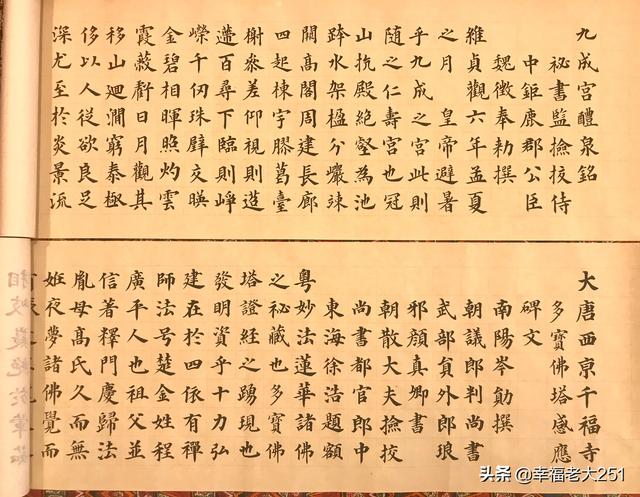 九成宮醴泉銘
祕書監撿挍侍
中鉅鹿郡公臣
魏徵奉勑撰
維貞觀六年孟夏
之月 皇帝避暑
乎九成之宮此則
随之仁壽宮也冠
山抗殿絶壑為池
跨水架楹分巖竦
闕高閣周建長廊
四起棟宇膠葛臺
榭參差仰視則迢
遰百尋下臨則崢
嶸千仞珠壁交暎
金碧相暉照灼雲
霞蔽虧日月觀其
移山迴澗窮泰極
侈以人從欲良足
深尤至於炎景流
大唐西京千福寺
多寶佛塔感應
碑文
南陽岑勛撰
朝議郎判尚書
武部員外郎琅
邪顏真卿書
朝散大夫撿挍
尚書都官郎中
東海徐浩題額
粵妙法蓮華諸佛
之秘藏也多寶佛
塔證經之踴現也
發明資乎十力弘
建在於四依有禪
師法号楚金姓程
廣平人也祖父並
信著釋門慶歸法
胤母高氏久而無
姙夜夢諸佛覺而
头条 @幸福老大251